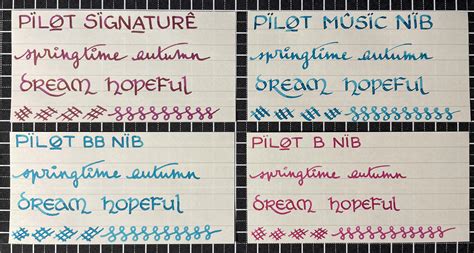 PÏLØT SÏGNATURÊ
springtime autumn
DREAM HOPEFUL
PÏLØT MÛSÏC NÏB
springtime autumn
DREAM HOPEFUL
PÏLØT BB NÏB
springtime autumn
DREAM HOPEFUL
PÏLØT B NÏB
springtime autumn
DREAM HOPEFUL